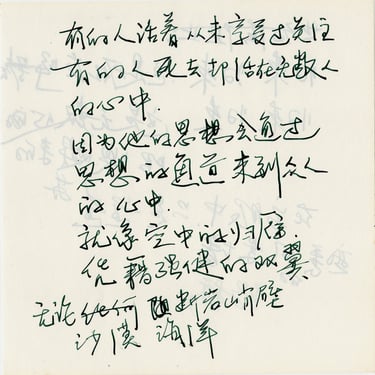 有的人活着从未享受过关注
有的人死去却活在无数人
的心中.
因为他的思想会通过
思想的通道来到众人
的心中.
就像空中的归雁.
凭藉强健的双翼
无论 断岩峭壁
沙漠 海洋